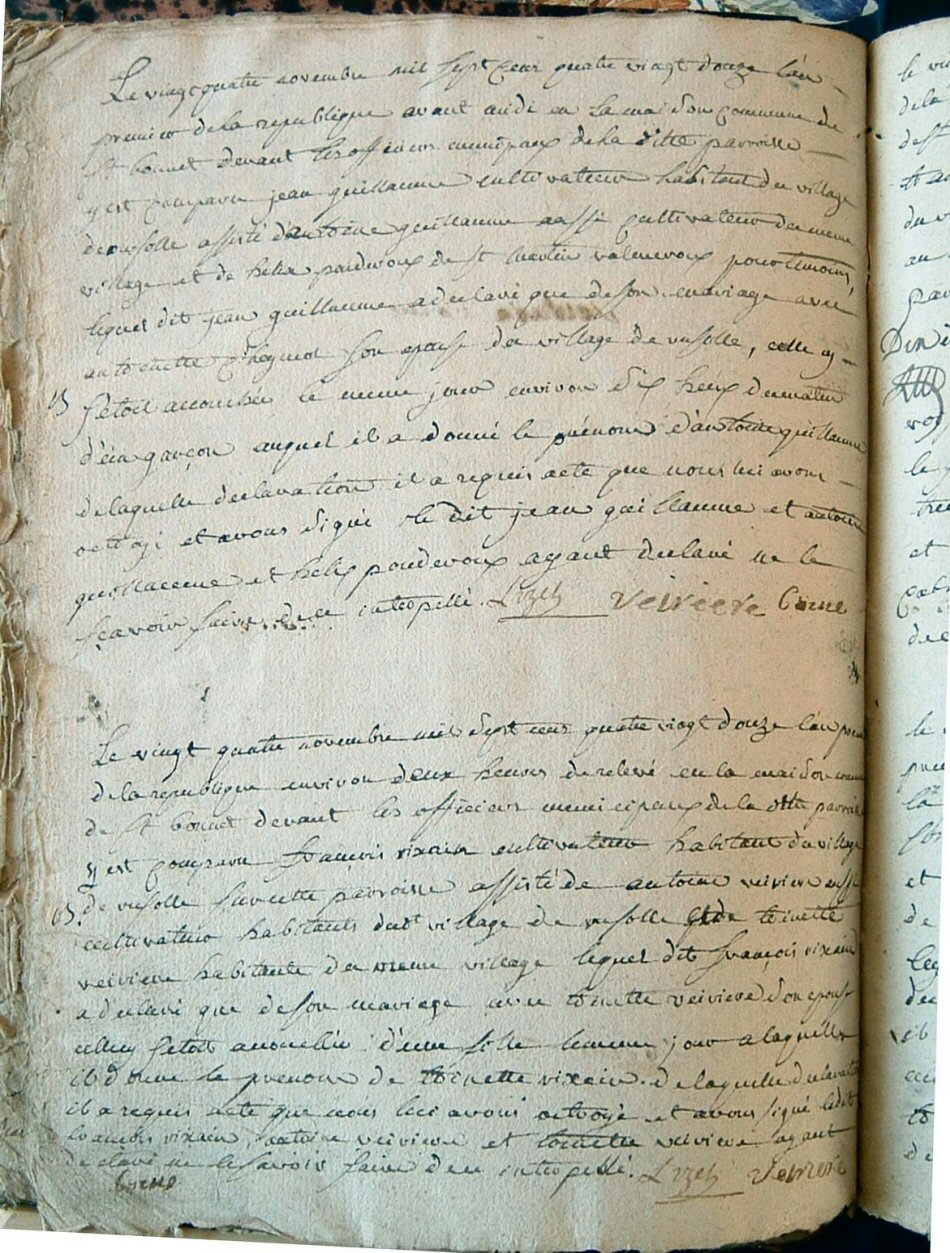 Le vingt quatre novembre mil sept cens quatre vingt douze l'an
premier de la republique avant midi en la maison commune de
st bonnet devant les officiers municipaux de la ditte parroisse
y est comparu jean guillaume cultivateur habitant du village
de assisté d'antoine guillaume aussi cultivateur du meme
village et de helix pouderoux de st martin valmeroux pour temoins,
lequel dit jean guillaume a declaré que de son mariage avec
antoinette son epouse du village de rusolle, celle cy
s'etoit accouchée le meme jour environ dix heux du matin
d'un garçon auquel il a donné le prénom d'antoine guillaume
de laquelle declaration il a requis acte que nous lui avons
octroyé et avons signé le dit jean guillaume et antoine
guillaume et helix pouderoux ayant declaré ne le
sçavoir faire de ce interpellé. Lizet veiriere Corne
Le vingt quatre novembre mil sept cens quatre vingt douze l'an
de la republique environ deux heures de relevé en la maison
de st bonnet devant les officiers municipaux de la ditte parroisse
y est comparu francois vixain cultivateur habitant du village
de rusolle sur cette parroisse assisté de antoine veiriere aussi
cultivateur habitants dudt village de rusolle et de toinette
veiriere habitante du meme village lequel dit françois vixain
a declaré que de son mariage avec toinette veiriere son epouse
s'etoit accouchée d'une fille le meme jour a laquelle
il donne le prenom de toinette vixain. de laquelle declaration
il a requis acte que nous lui avons octroyé et avons signé ledit
francois vixain, antoine veiriere et toinette veiriere ayant
declaré ne le savoir faire de ce interpellé. Lizet veiriere
Corne